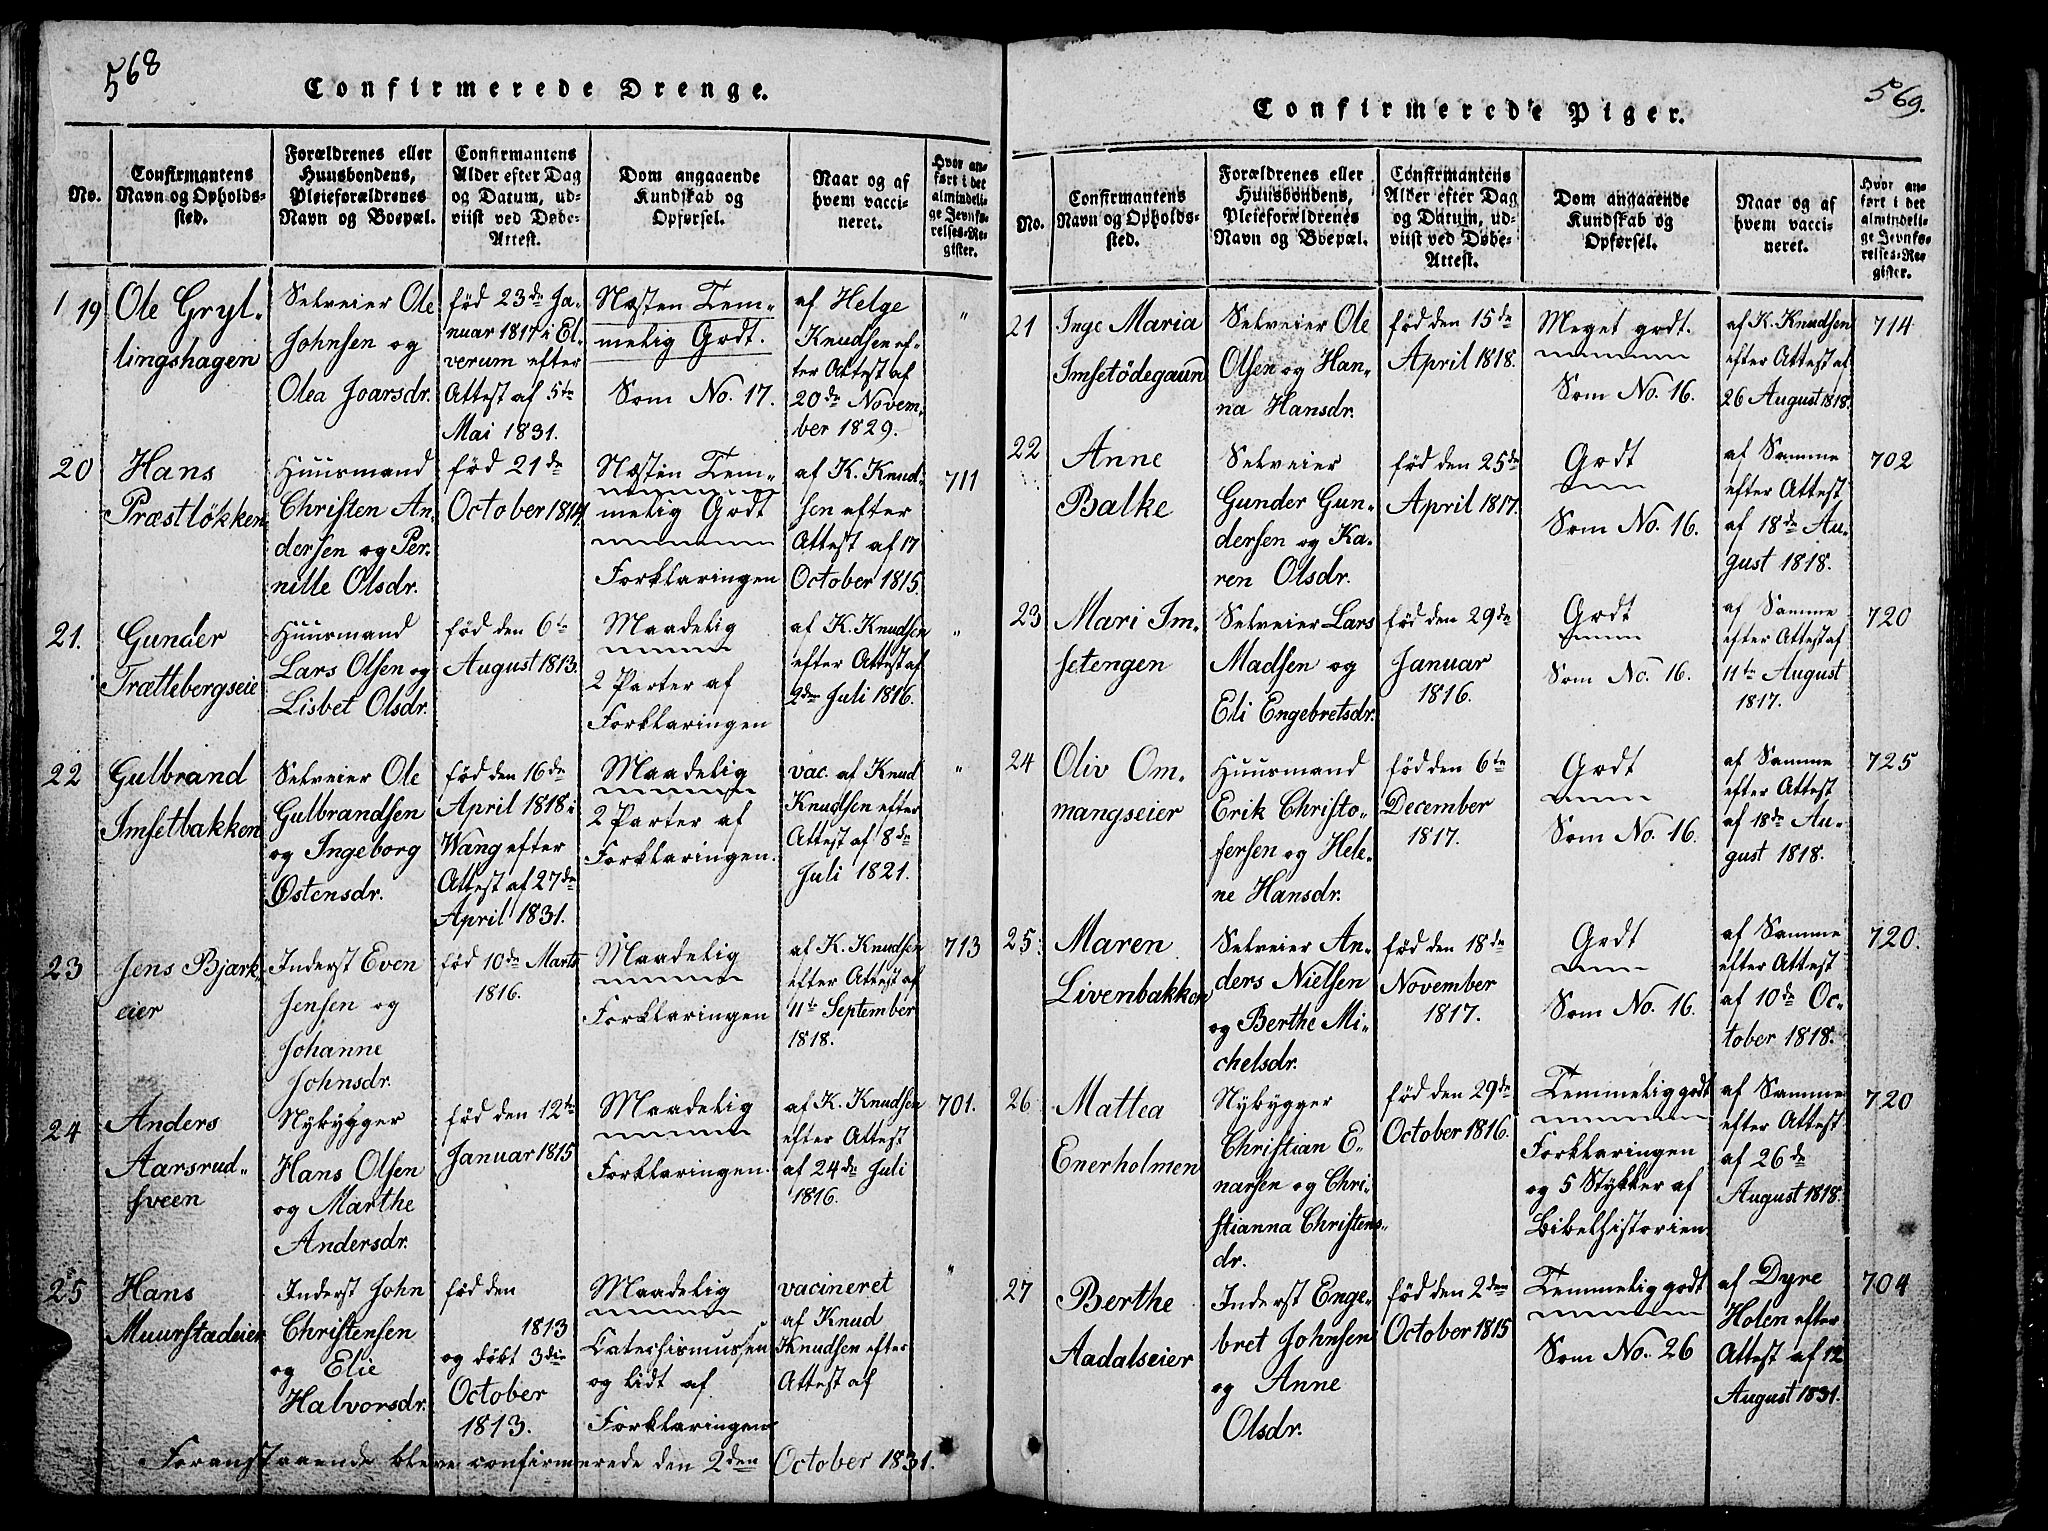 568
Confirmerede Drenge.
No.
Confirmantens
Navn og Opholds-
sted.
Forældrenes eller
Huusbondens,
Pleieforældrenes
Navn og Boepæl.
Confirmantens
Alder efter Dag
og Datum, ud-
viist ved Døbe-
Attest.
Dom angaaende
Kundskab og
Opførsel.
Naar og af
hvem vacci-
neret.
Hvor an-
ført i det
almindeli-
ge Jevnfø-
relses-Re-
gister.
19
Ole Gryl-
lingshagen
Selveier Ole
Johnsen og
Olea Joarsdr.
fød 23de Ja-
nuar 1817 i El-
verum efter
Attest af 5te
Mai 1831.
Næsten Tem-
melig Godt.
Som No. 17.
af Helge
Knudsen ef-
ter Attest af
20de Novem-
ber 1829.
"
20
Hans
Præstløkken
Huusmand
Christen An-
dersen og Per-
nille Olsdr.
fød 21de
October 1814
Næsten Tem-
melig Godt
Forklaringen
af K. Knud-
sen efter
Attest af 17
October 1815.
711
21.
Gunder
Trættebergseie
Huusmand
Lars Olsen og
Lisbet Olsdr.
fød den 6te
August 1813.
Maadelig
2 Parter af
Forklaringen
af K. Knudsen
efter Attest af
2de Juli 1816.
"
22
Gulbrand
Imsetbakken
Selveier Ole
Gulbrandsen
og Ingeborg
Østensdr.
fød den 16de
April 1818 i
Wang efter
Attest af 27de
April 1831.
Maadelig
2 Parter af
Forklaringen.
vac. af Knud
Knudsen efter
Attest af 8de
Juli 1821.
"
23
Jens Bjørk-
eier
Inderst Even
Jensen og
Johanne
Johnsdr.
fød 10de Marts
1816.
Maadelig
Forklaringen
af K. Knudsen
efter Attest af
11te September
1818.
713
24
Anders
Aarsrud-
sveen
Nybygger
Hans Olsen
og Marthe
Andersdr.
fød den 12te
Januar 1815
Maadelig
Forklaringen.
af K. Knudsen
efter Attest
af 24de Juli
1816.
701.
25
Hans
Muurstadeier
Inderst John
Christensen
og Elie
Halvorsdr.
fød den
1813
og døbt 3die
October
1813.
Maadelig
Catechismussen
og lidt af
Forklaringen
vacineret
af Knud
Knudsen efter
Attest af
"
Foranstaaende bleve confirmerede den 2den October 1831.
569.
Confirmerede Piger.
No.
Confirmantens
Navn og Opholds-
sted.
Forældrenes eller
Huusbondens,
Pleieforældrenes
Navn og Boepæl.
Confirmantens
Alder efter Dag
og Datum, ud-
viist ved Døbe-
Attest.
Dom angaaende
Kundskab og
Opførsel.
Naar og af
hvem vacci-
neret.
Hvor an-
ført i det
almindeli-
ge Jevnfø-
relses-Re-
gister.
21
Inge Maria
Imsetødegaun
Selveier Ole
Olsen og Han-
na Hansdr.
fød den 15de
April 1818.
Meget godt.
Som No. 16.
af K. Knudsen
efter Attest af
26 August 1818.
714
22
Anne
Balke
Selveier
Gunder Gun-
dersen og Ka-
ren Olsdr.
fød den 25de
April 1817.
Godt
Som No. 16.
af Samme
efter Attest
af 18de Au-
gust 1818.
702
23
Mari Im-
setengen
Selveier Lars
Madsen og
Eli Engebretsdr.
fød den 29de
Januar
1816.
Godt
Som No. 16.
af Samme
efter Attest af
11te August
1817.
720
24
Oliv Om-
mangseier
Huusmand
Erik Christo-
fersen og Hele-
ne Hansdr.
fød den 6te
December
1817.
Godt
Som No. 16.
af Samme
efter Attest
af 18de Au-
gust 1818.
725
25
Maren
Livenbakken
Selveier An-
ders Nielsen
og Berthe Mi-
chelsdr.
fød den 18de
November
1817.
Godt
Som No. 16.
af Samme
efter Attest
af 10de Oc-
tober 1818.
720.
26
Mattea
Enerholmen
Nybygger
Christian E-
narsen og Chri-
stianna Christens-
dr.
fød den 29de
October 1816.
Temmelig godt
Forklaringen
og 5 Stykker af
Bibelhistorien
af Samme
efter Attest
af 26de
August 1818.
720
27
Berthe
Aadalseier
Inderst Enge-
bret Johnsen
og Anne
Olsdr.
fød den 2den
October 1815
Temmelig godt
Som No. 26
af Dyre
Holen efter
Attest af 12
August 1831.
704